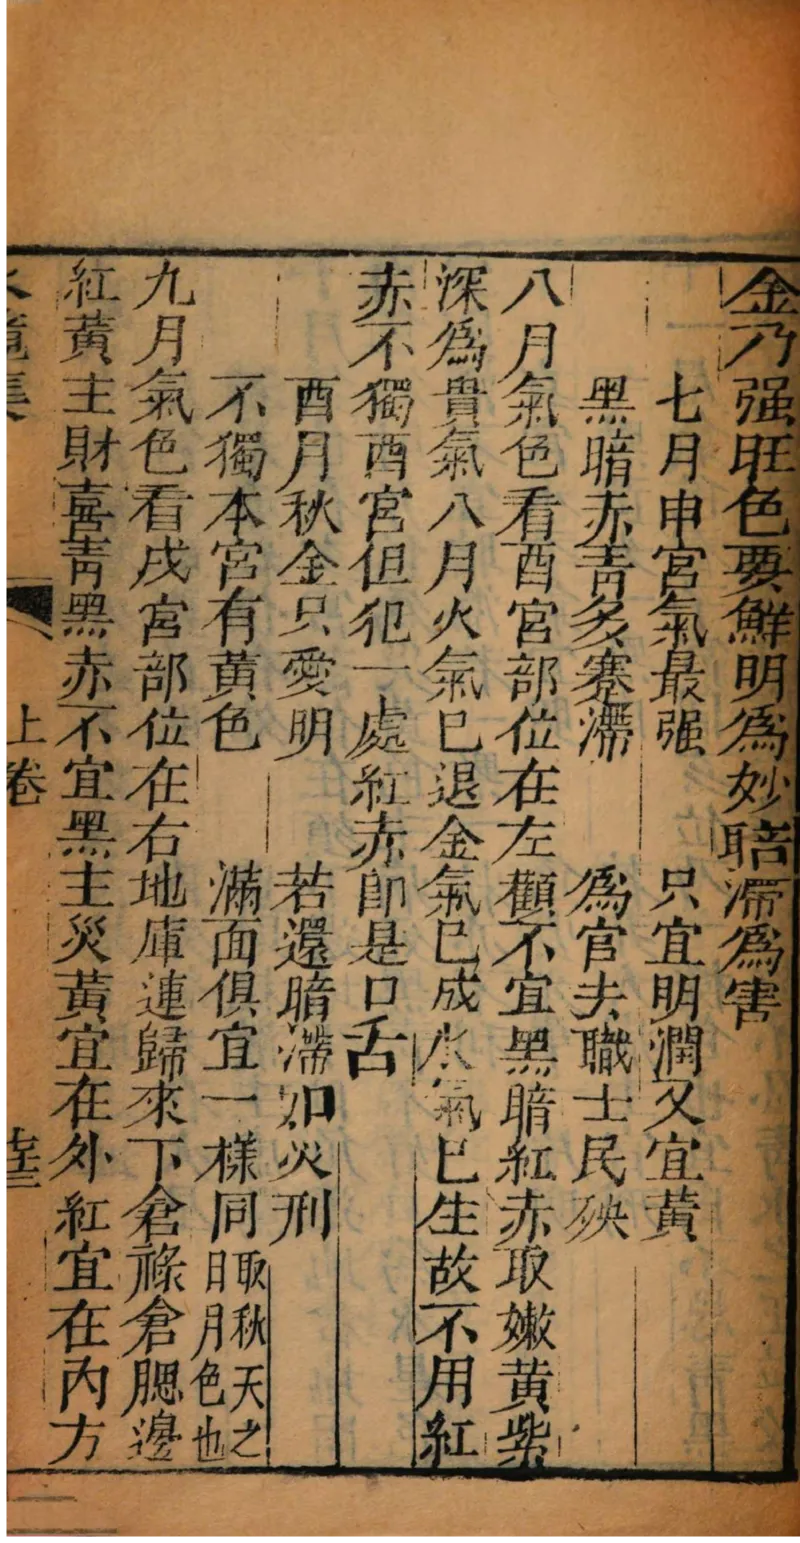 金乃强旺色要鮮明爲妙暗滯爲害
七月申宮氣最强　只宜明潤又宜黃
黑暗赤青多蹇滯　爲官失職士民殃
八月氣色看酉宮部位在左顴不宜黑暗紅赤取嫩黃紫
深爲貴氣八月火氣已退金氣已成水氣已生故不用紅
赤不獨酉宮但犯一處紅赤卽是口舌
酉月秋金只愛明　若還暗滯如災刑
不獨本宮有黃色　滿面俱宜一樣同取秋天之日月色也
九月氣色看戌宮部位在右地庫連歸來下倉祿倉腮邊
紅黃主財喜青黑赤不宜黑主災黃宜在外紅宜在內方
上卷